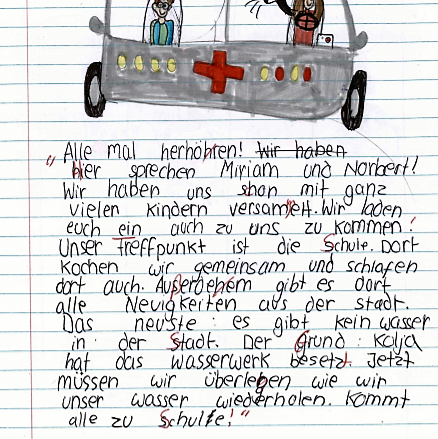 „Alle mal herhöhren! Wir haben
hier sprechen Miriam und Norbert!
Wir haben uns shon mit ganz
vielen kindern versammelt. Wir laden
euch ein auch zu uns zu kommen!
Unser Treffpunkt ist die Schule. Dort
kochen wir gemeinsam und schlafen
dort auch. Außerdehem gibt es dort
alle Neuigkeiten aus der stadt.
Das neuste: es gibt kein wasser
in der Stadt. Der Grund: Kolja
hat das wasserwerk besetzt. Jetzt
müssen wir überlegen wie wir
unser wasser wiederholen. Kommt
alle zu Schulle!"